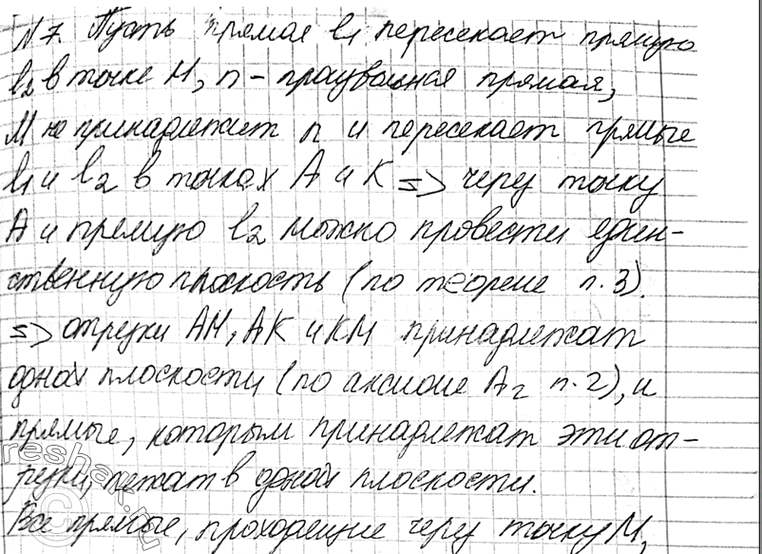 N 7. Пусть прямая l₁ пересекает прямую
l₂ в точке M, n - произвольная прямая,
M не принадлежит n и пересекает прямые
l₁ и l₂ в точках A и K => через точку
A и прямую l₂ можно провести един-
ственную плоскость (по теореме п. 3).
=> отрезки AM, AK и KM принадлежат
одной плоскости (по аксиоме A₂ п. 2), и
прямые, которым принадлежат эти от-
резки, лежат в одной плоскости.
Все прямые, проходящие через точку M,
reshak.ru
©